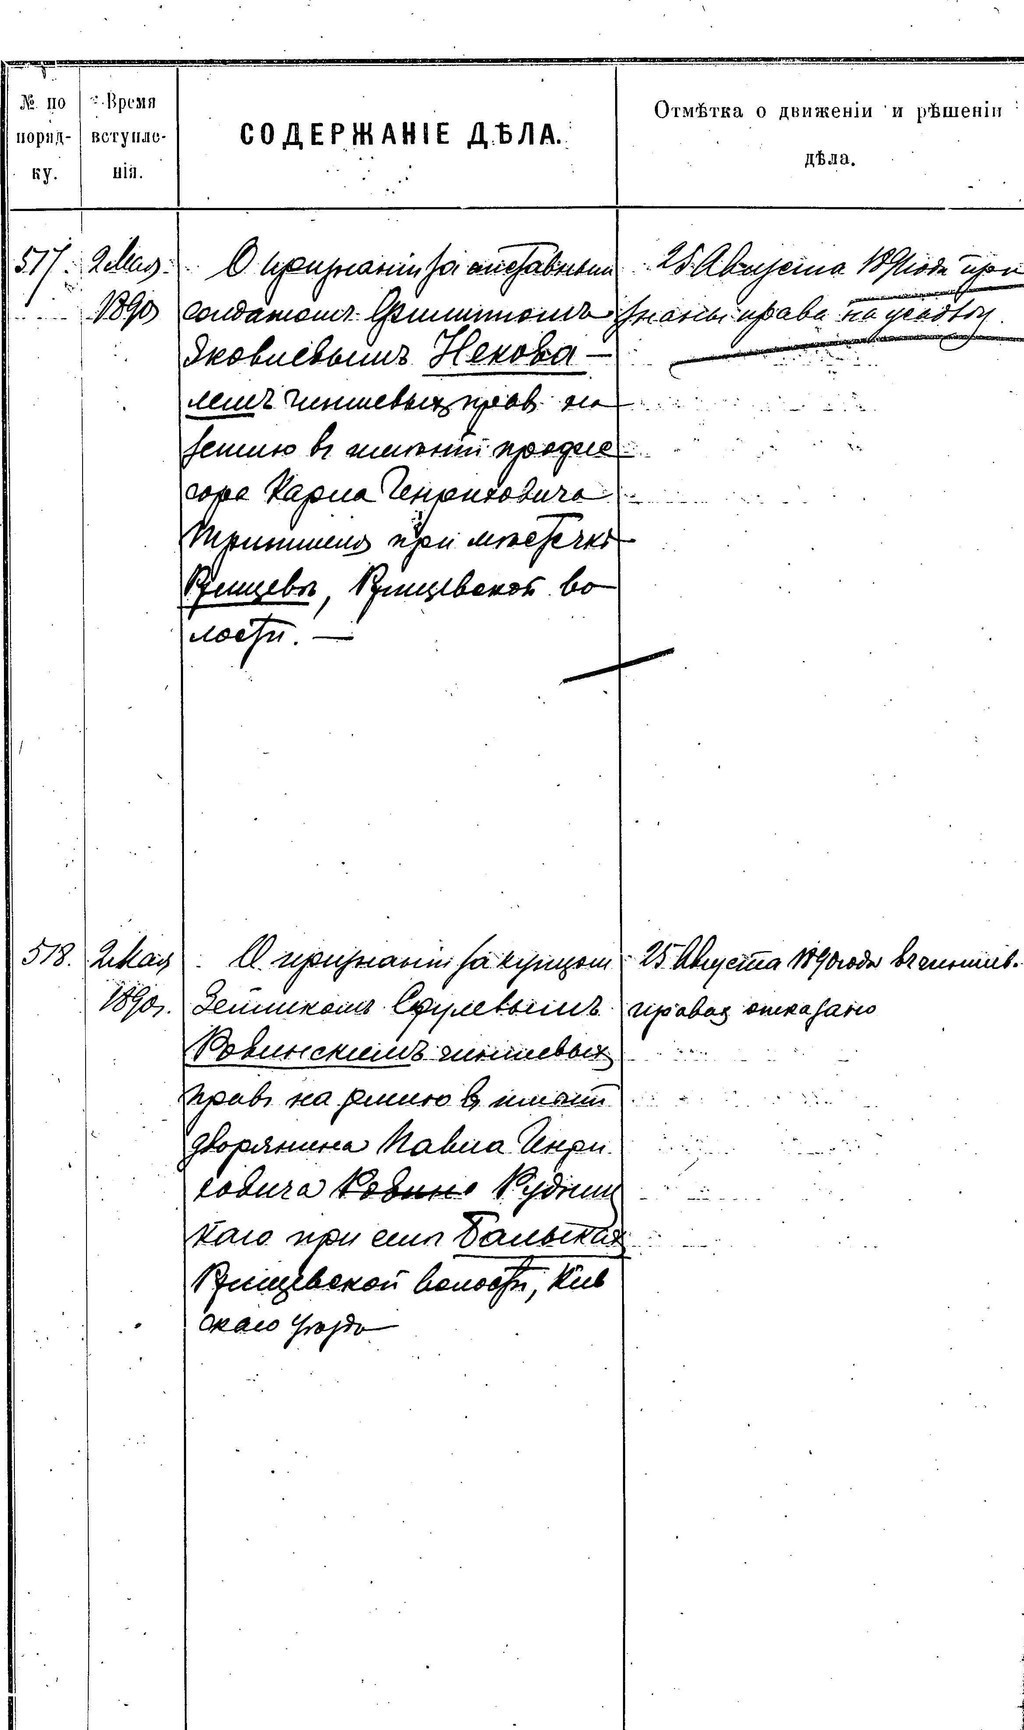 № по поряд-ку.
Время вступле-нія.
СОДЕРЖАНІЕ ДѢЛА.
Отмѣтка о движеніи и рѣшеніи
дѣла.
517.
2 Мая
1890
О признаніи за отставнымъ
солдатомъ Филиппомъ
Яковлевымъ Некова—
лемъ чиншевыхъ правъ на
землю въ имѣніи профес
сора Карла Генриховича
при мѣстечкѣ
Ржищевѣ, Ржищевской во
лости. —
25 Августа 1890 года при
знаны права на усадьбу.
518.
2 Мая
1890 г.
О признаніи за купцомъ
Сруловымъ
Ровинскимъ чиншевыхъ
правъ на землю въ имѣніи
дворянина Павла Генри
ховича Рудниц
каго при селѣ Балыкахъ
Ржищевской волости, Кіев
скаго уѣзда
25 Августа 1890 года въ чиншев.
правах отказано